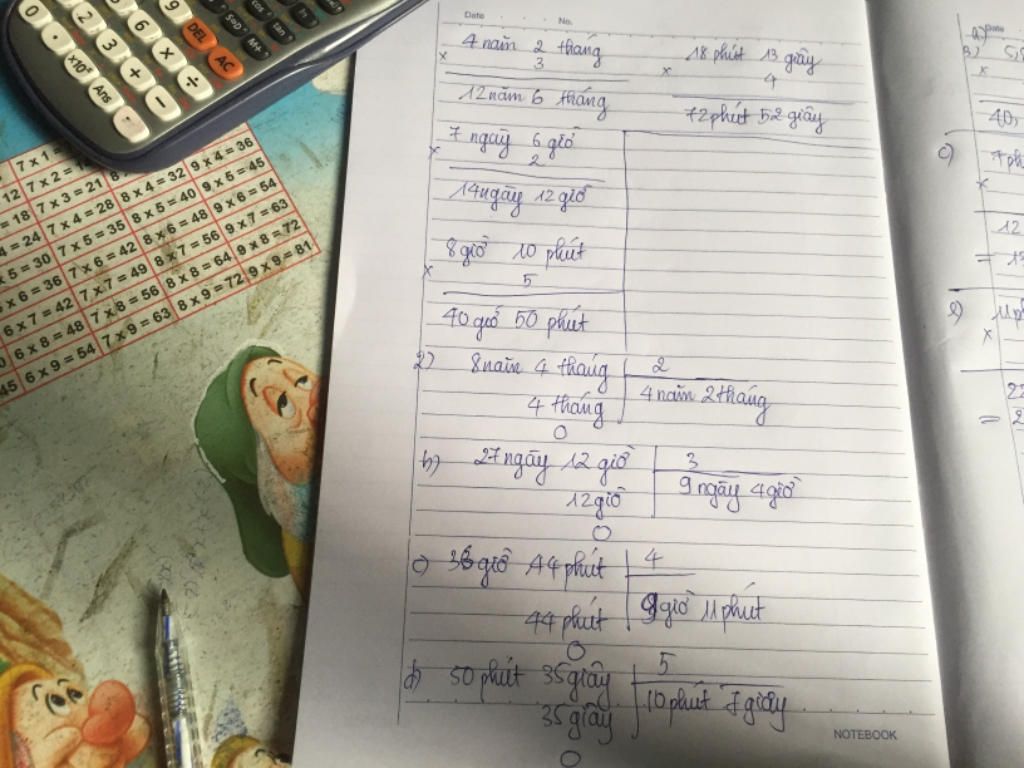 Date No.
4 năm 2 tháng
× 3
12 năm 6 tháng
18 phút 13 giây
× 4
72 phút 52 giây
7 ngày 6 giờ
× 2
14 ngày 12 giờ
8 giờ 10 phút
× 5
40 giờ 50 phút
2) 8 năm 4 tháng 2
4 tháng 4 năm 2 tháng
0
b) 27 ngày 12 giờ 3
12 giờ 9 ngày 4 giờ
0
c) 36 giờ 44 phút 4
44 phút 9 giờ 11 phút
0
d) 50 phút 35 giây 5
35 giây 10 phút 7 giây
0
NOTEBOOK
0 2 3 + −
6 × ÷
9 DEL AC
×10ˣ Ans =
cos tan M+
7 x 2 =
7 x 3 = 21
7 x 4 = 28
7 x 5 = 35
7 x 6 = 42
7 x 7 = 49
7 x 8 = 56
7 x 9 = 63
8 x 4 = 32
8 x 5 = 40
8 x 6 = 48
8 x 7 = 56
8 x 8 = 64
8 x 9 = 72
9 x 4 = 36
9 x 5 = 45
9 x 6 = 54
9 x 7 = 63
9 x 8 = 72
9 x 9 = 81
6 x 7 = 42
6 x 8 = 48
6 x 9 = 54
a) Date
B)
×
40,
c)
×
12
=
×
22
=